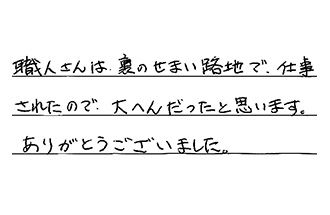 職人さんは、裏のせまい路地で、仕事
されたので、大へんだったと思います。
ありがとうございました。